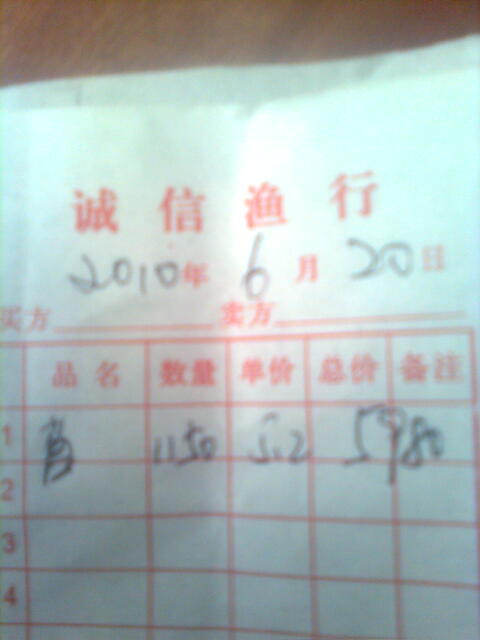 诚信渔行
2010年 6月 20日
买方 卖方
品名 数量 单价 总价 备注
1 1150 5.2 5980
2
3
4